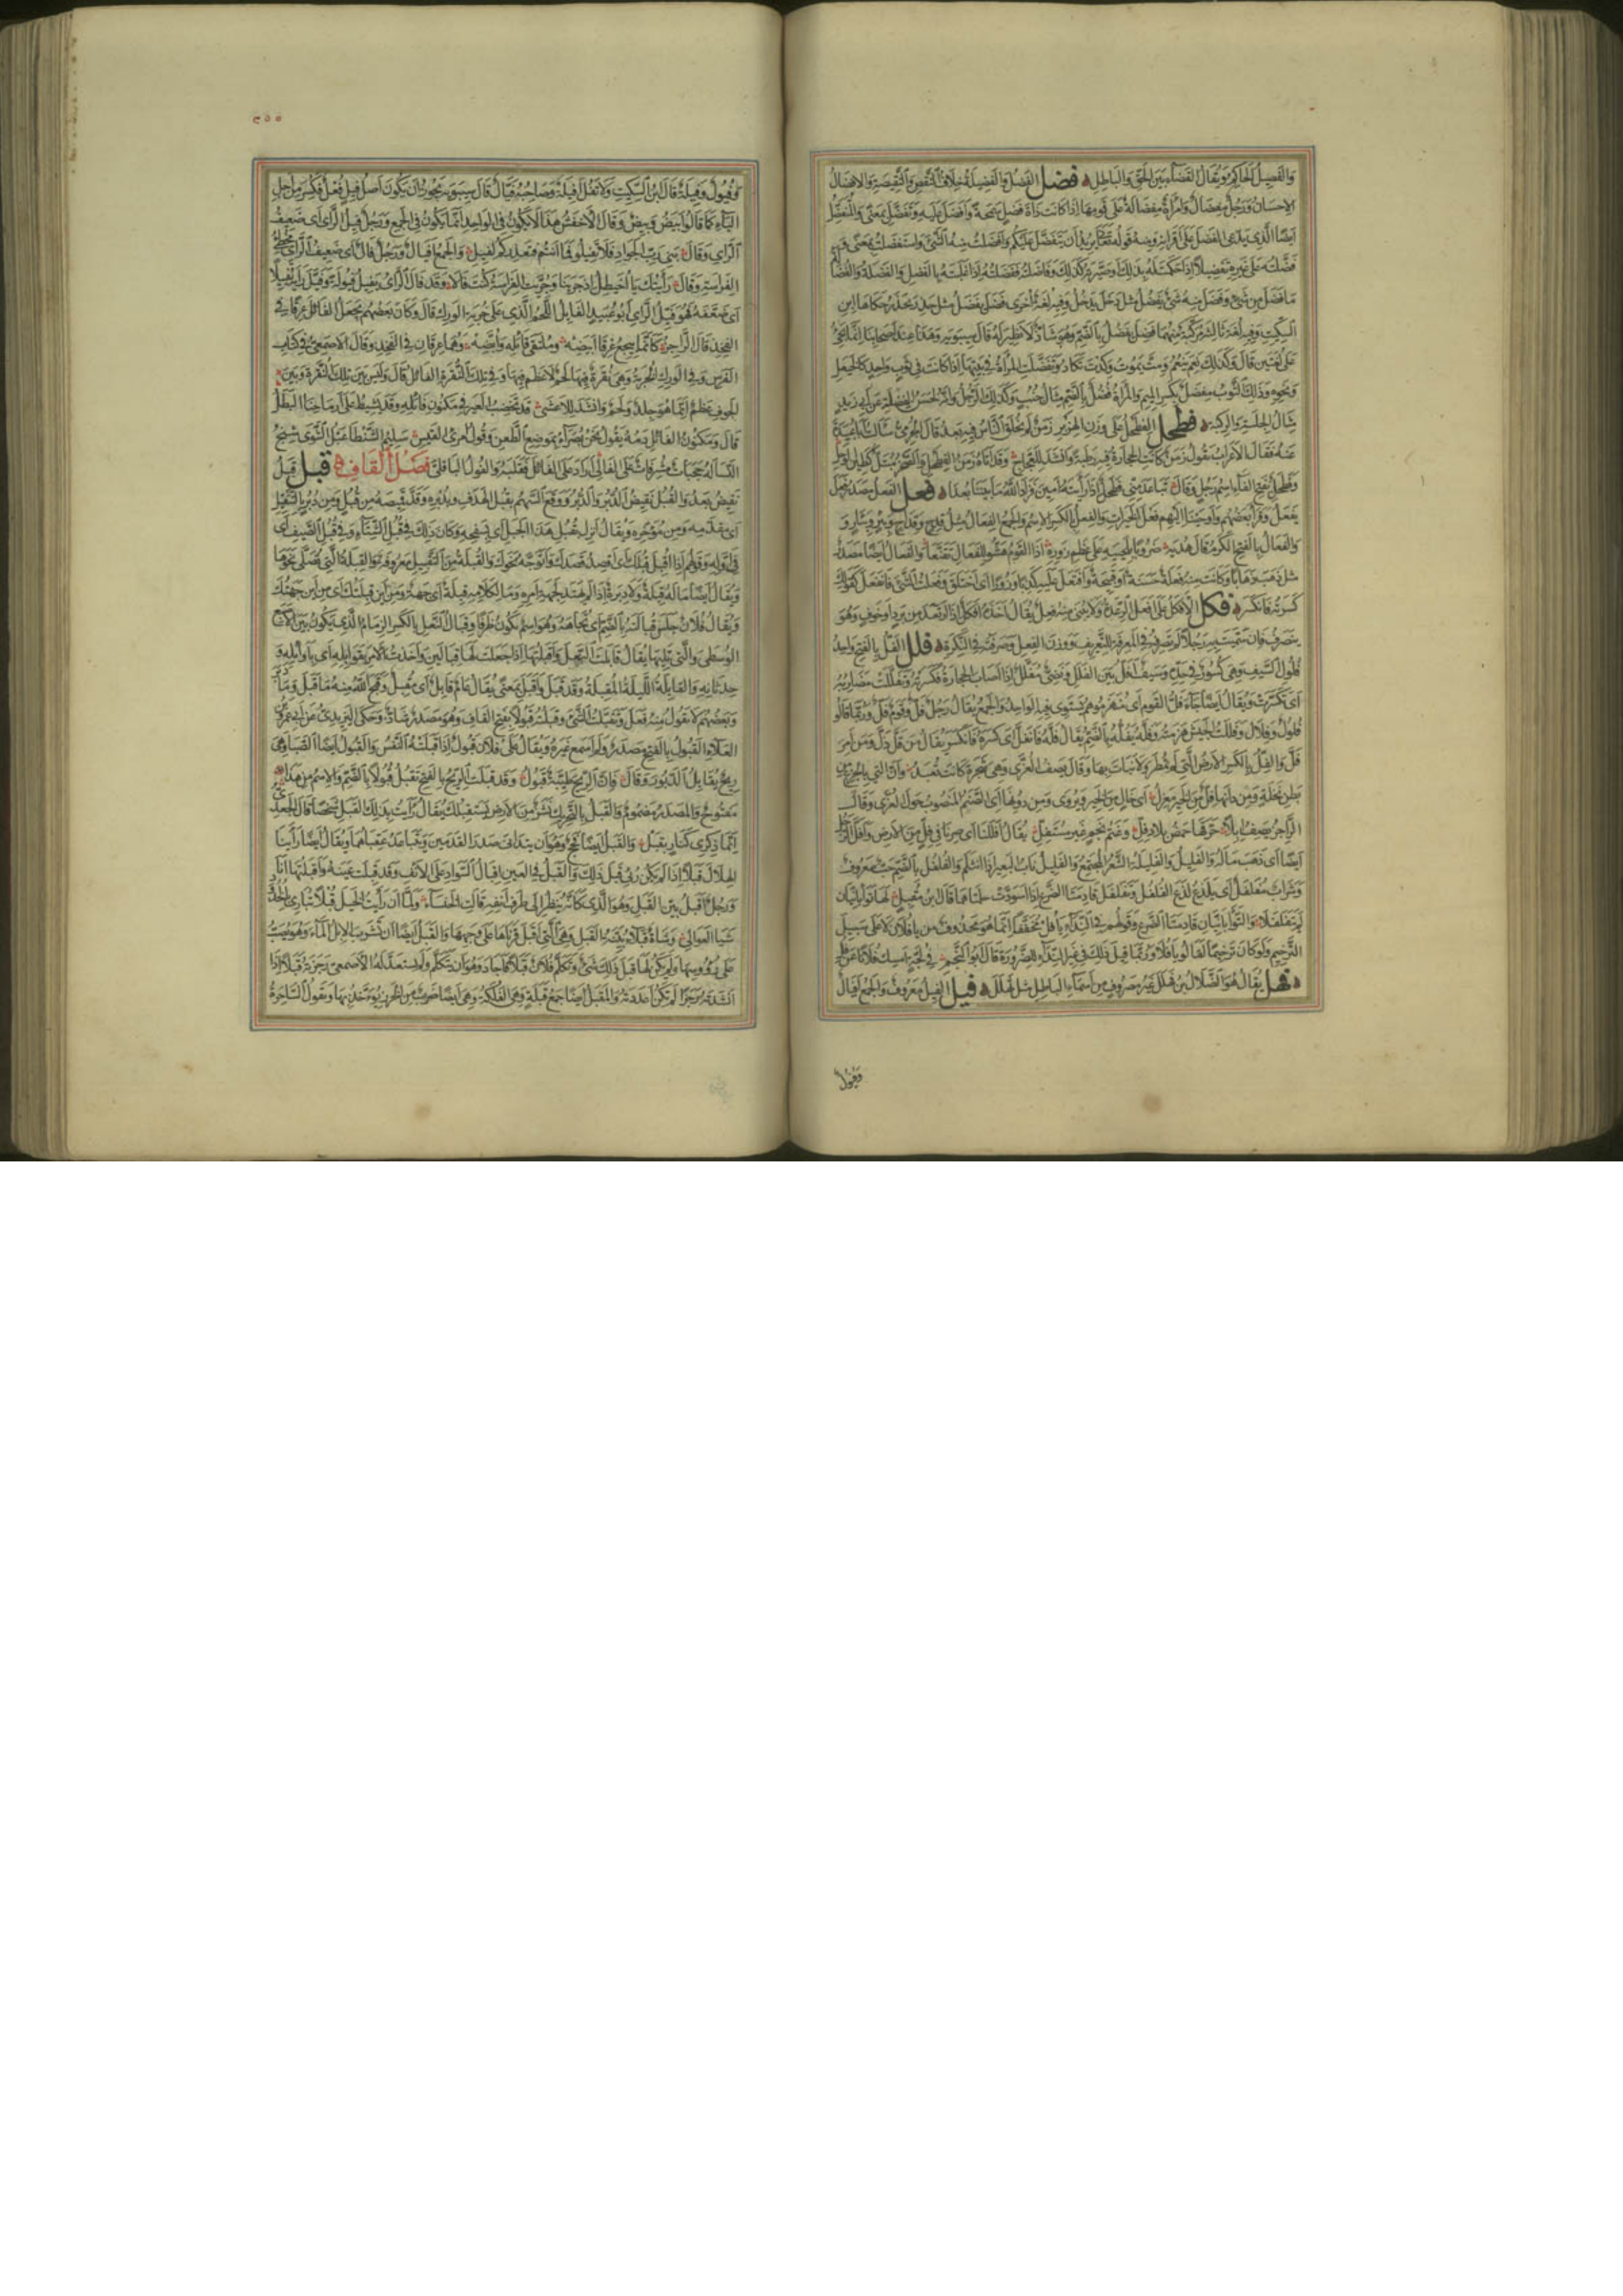 والفيصل الحاكم ويقال القضاء بين الحق والباطل فضل الفضل والفضيلة خلاف النقص والنقيصة والافضال
الاحسان ورجل مفضال وامرأة مفضالة على قومها اذا كانت ذات فضل سمحة وافضل عليه وتفضل بمعنى والمتفضل
ايضا الذي يدعي الفضل على اقرانه ومنه قوله تعالى يريد ان يتفضل عليكم وافضلت منه الشئ واستفضلت بمعنى
فضلته على غيره تفضيلا اذا حكمت له بذلك او صيرته كذلك وفاضلته ففضلته اذا غلبته بالفضل والفضلة والفضالة
ما فضل من شئ وفضل منه شئ يفضل مثل دخل يدخل وفيه لغة اخرى فضل يفضل مثل حذر يحذر حكاها ابن
السكيت وفيه لغة ثالثة مركبة منهما فضل بالكسر يفضل بالضم وهو شاذ لا نظير له قال سيبويه وهذا عند اصحابنا انما يجئ
على لغتين قال وكذلك نعم ينعم ومت تموت وكدت تكاد وتفضلت المرأة في بيتها اذا كانت في ثوب واحد كالخيعل
ونحوه وذلك الثوب مفضل بكسر الميم والمرأة فضل بالضم مثال جنب وكذلك الرجل وانه لحسن الفضلة عن ابي زيد
مثال الجلسة والركبة فطحل الفطحل على وزن الهزبر زمن لم يخلق الناس فيه بعد قال الجرمي سألت ابا عبيدة
عنه فقال الاعراب تقول زمن كانت الحجارة فيه رطبة وانشد للعجاج وقد اتاه زمن الفطحل والصخر مبتل كطين الوحل
وفطحل بفتح الفاء اسم رجل وقال تباعد مني فطحل اذ رأيته امين فزاد الله ما بيننا بعدا فعل الفعل مصدر فعل
يفعل وقرأ بعضهم واوحينا اليهم فعل الخيرات والفعل بالكسر الاسم والجمع الفعال مثل قدح وقداح وبئر وبئار
والفعال بالفتح الكرم قال هدبة ضروبا بلحييه على عظم زوره اذا القوم هشوا للفعال تقنعا والفعال ايضا مصدر
مثل ذهب ذهابا وكانت منه فعلة حسنة او قبيحة وافتعل عليه كذبا وزورا اي اختلق وفعلت الشئ فانفعل كقولك
كسرته فانكسر فكل الافكل على افعل الرعدة ولا يبنى منه فعل يقال اخذه افكل اذا ارتعد من برد او خوف وهو
ينصرف فان سميت به رجلا لم تصرفه في المعرفة للتعريف ووزن الفعل وصرفته في النكرة فلل الفل بالفتح واحد
فلول السيف وهي كسور في حده وسيف افل بين الفلل ونصي مفلل اذا اصاب الحجارة فكسرته وتفللت مضاربه
اي تكسرت ويقال ايضا جاء فل القوم اي منهزموهم يستوي فيه الواحد والجمع يقال رجل فل وقوم فل وربما قالوا
فلول وفلال وفللت الجيش هزمته وفله يفله بالضم يقال فله فانفل اي كسره فانكسر يقال من قل ذل ومن امر
فل والفل بالكسر الارض التي لم تمطر ولا نبات بها وقال يصف العزى وهي شجرة كانت تعبد وان التي بالجزع من
بطن نخلة ومن دانها فل من الخير معزل اي خال من الخير ويروى ومن دونها اي الصنم المنصوب حول العزى وقال
الراجز يصف ابلا حرقها حمض بلاد فل وغتم نجم غير مستقل يقال افللنا اي صرنا في فل من الارض وافل الرجل
ايضا اي ذهب ماله والفليل والفليلة الشعر المجتمع والفليل ناب البعير اذا انثلم والفلفل بالضم حب معروف
وشراب مفلفل اي يلذع لذع الفلفل وتفلفل قادمتا الضرع اذا اسودت حلمتاهما قال ابن مقبل لها توأبانيان
لم يتفلفلا والتوأبانيان قادمتا الضرع وقولهم في النداء يا فل مخففا انما هو محذوف من يا فلان لا على سبيل
الترخيم ولو كان ترخيما لقالوا يا فلا وربما قيل ذلك في غير النداء للضرورة قال ابو النجم في لجة امسك فلانا عن فل
فهل يقال هو الضلال بن فهلل غير مصروف من اسماء الباطل مثل ثهلل فيل الفيل معروف والجمع افيال
وفيول
٢٥٥
وفيول وفيلة قال ابن السكيت ولا تقل افيلة وصاحبه فيال قال سيبويه يجوز ان يكون اصل فيل فعل فكسر من اجل
الياء كما قالوا ابيض وبيض وقال الاخفش هذا لا يكون في الواحد انما يكون في الجمع ورجل فيل الرأي اي ضعيف
الرأي وقال بني رب الجواد فلا تفيلوا فما انتم فنعذركم لفيل والجمع افيال ورجل فال اي ضعيف الرأي مخطئ
الفراسة وقال رأيتك يا اخيطل اذ جرينا وجربت الفراسة كنت فالا وقد فال الرأي يفيل فيولة وفيل رأيه تفييلا
اي ضعفه فهو فيل الرأي ابو عبيد الفايل اللحم الذي على خربة الورك قال وكان بعضهم يجعل الفائل عرقا في
الفخذ قال الراجز كأنما ييجع عرقا ابيضه وملتقى فائله وأبضه وهما عرقان في الفخذ وقال الاصمعي في كتاب
الفرس وفي الورك الخربة وهي نقرة فيها لحم لا عظم فيها وفي تلك النقرة الفائل قال وليس بين تلك النقرة وبين
الجوف عظم انما هو جلد ولحم وانشد للاعشى قد نخضب العير في مكنون فائله وقد يشيط على ارماحنا البطل
قال ومكنون الفائل دمه يقول نحن بصراء بموضع الطعن وقول امرئ القيس سليم الشظا عبل الشوى شنج
النسا له حجبات مشرفات على الفالي اراد على الفائل فقلبه والفول الباقلى فصل القاف قبل قبل
نقيض بعد والقبل نقيض الدبر والدبر ووقع السهم بقبل الهدف وبدبره وقد قميصه من قبل ومن دبر بالتثقيل
اي من مقدمه ومن مؤخره ويقال انزل بقبل هذا الجبل اي بسفحه وكان ذلك في قبل الشتاء وفي قبل الصيف اي
في اوله وقولهم اذا اقبل قبلك اي اقصد قصدك واتوجه نحوك والقبلة من التقبيل معروفة والقبلة التي تصلى نحوها
ويقال ايضا ما له قبلة ولا دبرة اذا لم يهتد لجهة امره وما لكلامه قبلة اي جهة ومن اين قبلتك اي من اين جهتك
ويقال فلان جلس قبالته بالضم اي تجاهه وهو اسم يكون ظرفا وقبال النعل بالكسر الزمام الذي يكون بين الاصبع
الوسطى والتي تليها يقال قابلت النعل واقبلتها اذا جعلت لها قبالين واخذت الامر بقوابله اي باوائله و
حدثانه والقابلة الليلة المقبلة وقد قبل واقبل بمعنى يقال عام قابل اي مقبل وقبح الله منه ما قبل وما دبر
وبعضهم لا يقول منه فعل وتقبلت الشئ وقبلته قبولا بفتح القاف وهو مصدر شاذ وحكى اليزيدي عن ابي عمرو بن
العلاء القبول بالفتح مصدر ولم اسمع غيره ويقال على فلان قبول اذا قبلته النفس والقبول ايضا الصبا وهي
ريح تقابل الدبور وقال فان الريح طيبة قبول وقد قبلت الريح بالفتح تقبل قبولا بالضم والاسم من هذا
مفتوح والمصدر مضموم والقبل بالتحريك نشز من الارض يستقبلك يقال رأيت بذلك القبل شخصا قال الجعدي
انما ذكري كنار بقبل والقبل ايضا فحج وهو ان يتدانى صدر القدمين ويتباعد عقباهما ويقال ايضا رأينا
الهلال قبلا اذا لم يكن رئي قبل ذلك والقبل في العين اقبال السواد على الانف وقد قبلت عينه واقبلتها انا
ورجل اقبل بين القبل وهو الذي كأنه ينظر الى طرف انفه قالت الخنساء ولما ان رأيت الخيل قبلا تباري بالخدود
شبا العوالي وشاة قبلاء بينة القبل وهي التي اقبل قرناها على وجهها والقبل ايضا ان تشرب الابل الماء وهو يصب
على رؤوسها ولم يكن لها قبل ذلك شئ وتكلم فلان قبلا فاجاد وهو ان يتكلم ولم يستعد له الاصمعي رجزته قبلا اذا
انشدته رجزا لم تكن اعددته والقبل ايضا جمع قبلة وهي الفلكة وهي ايضا ضرب من الخرز يؤخذ بها وتقول الساحرة